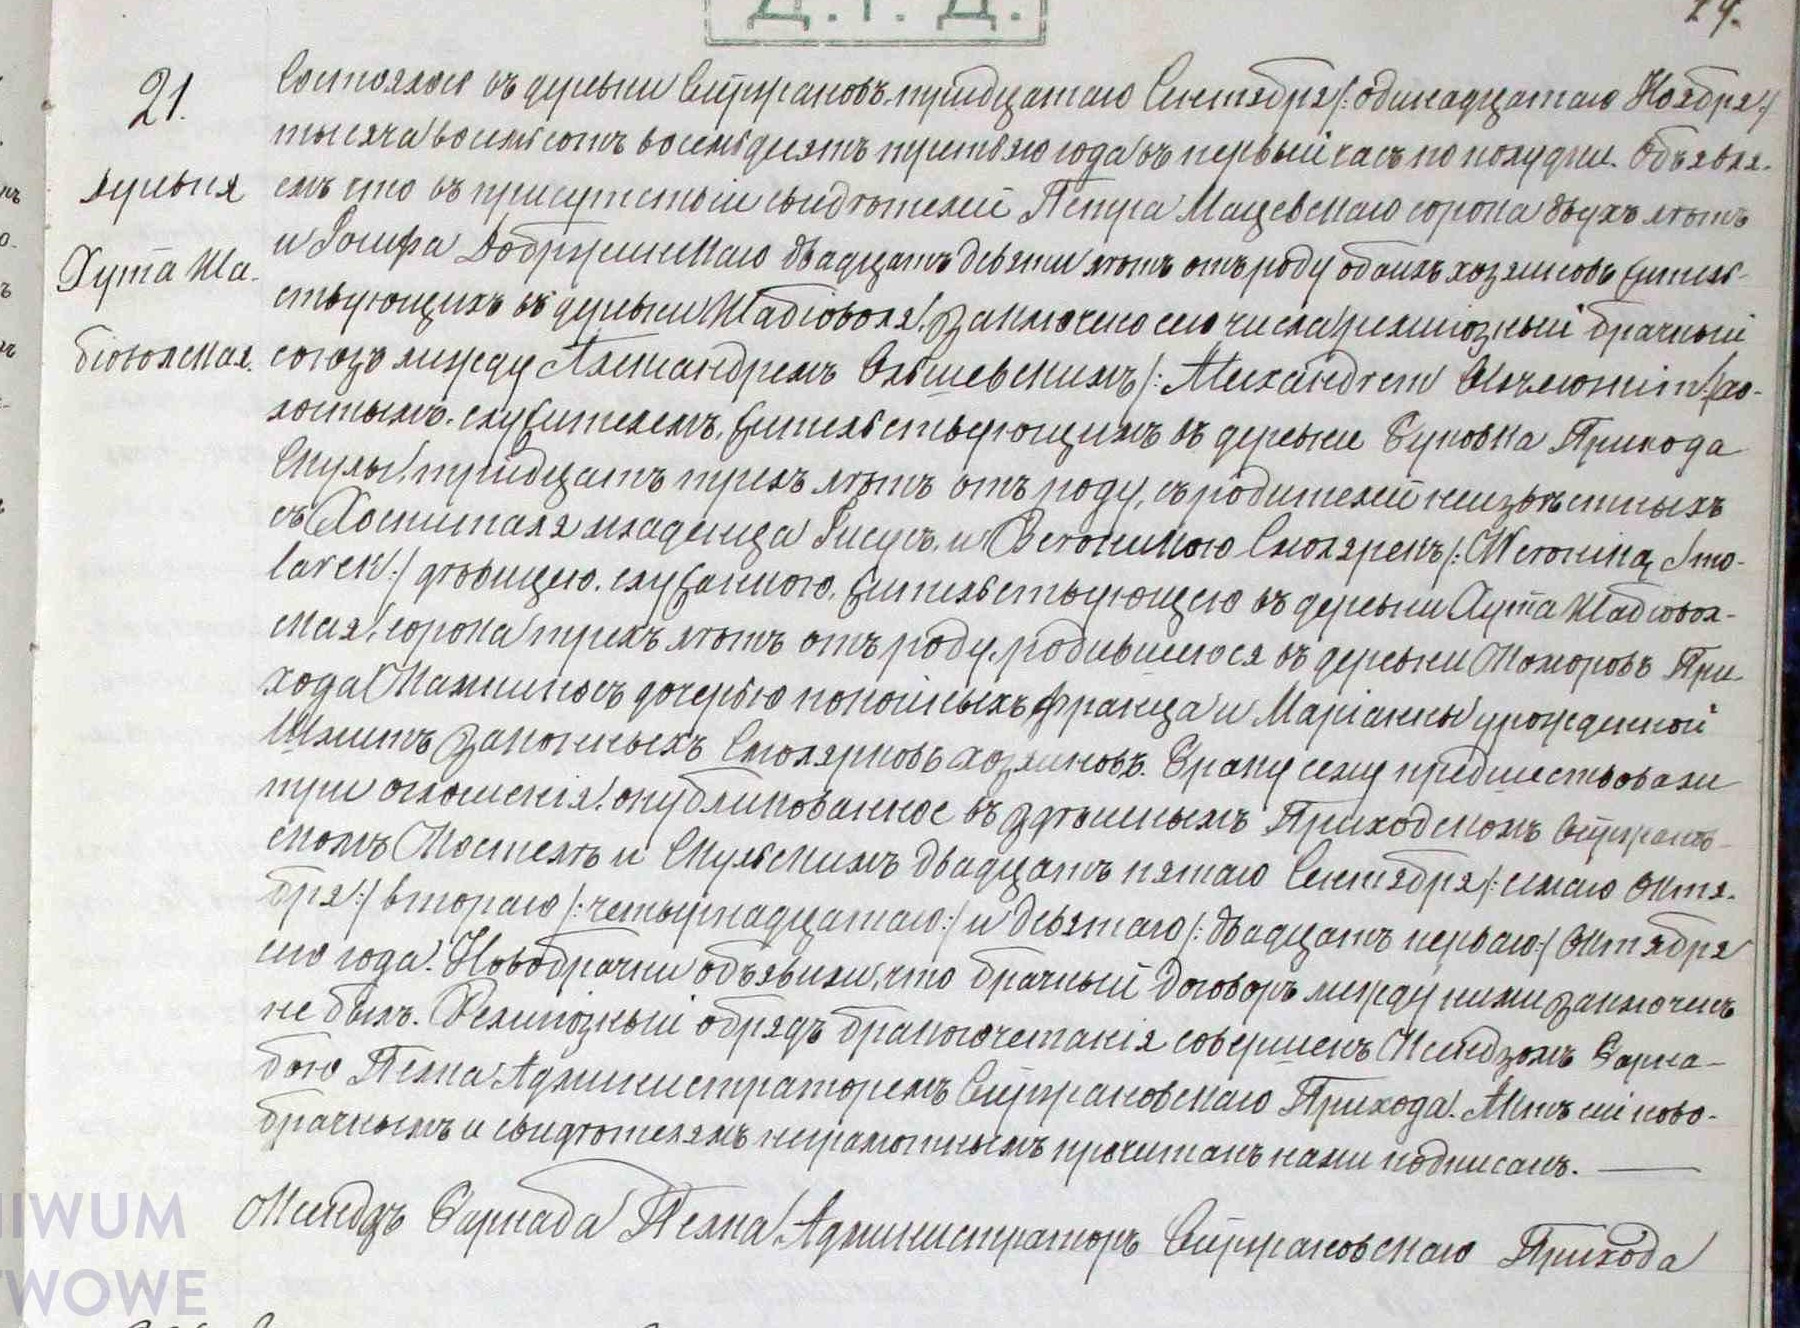 Д. Г. Д.
24.
21.
деревня
Хута Жа-
біовольская.
Состоялось въ деревни Ситрановъ тридцатаго Сентября /: одинадцатаго Ноября :/
тысяча восемьсотъ восемьдесятъ третьяго года въ первый часъ по полудни. Объявля-
емъ что въ присутствіи свидѣтелей Петра Мацевскаго сорока двухъ лѣтъ
и Іосифа Добржинскаго двадцать девяти лѣтъ отъ роду обоихъ хозяиновъ житель-
ствующихъ въ деревни Жабіовола, заключено сего числа религіозный брачный
союзъ между Александремъ Ольшевскимъ /: Alexandrem :/ хо-
лостымъ, служителемъ, жительствующимъ въ деревни Буковка Прихода
Скулы, тридцать трехъ лѣтъ отъ роду, съ родителей неизвѣстныхъ
съ Хоспиталя младенца Іисусъ, и Вероникою Смолярекъ /: Weroniką Smo-
larek :/ дѣвицею, служанкою, жительствующею въ деревни Хута Жабіовол-
ская, сорока трехъ лѣтъ отъ роду, родившеюся въ деревни Коморовъ При-
хода Каминскъ дочерью покойныхъ Франца и Маріанны урожденной
Шмитъ законныхъ Смолярковъ хозяиновъ. Браку сему предшествовали
три оглошенія, опубликованное въ здѣшнымъ Приходскомъ
скомъ Костелѣ и Скульскимъ двадцать пятаго Сентября /: семаго Октя-
бря :/ втораго /: четырнадцатаго :/ и девятаго /: двадцать перваго :/ Октября
сего года. Новобрачни объявили, что брачный договоръ между ними заключенъ
не былъ. Религіозный обрядъ бракосочетанія совершенъ Ксендзомъ Барна-
бою Пелка Администраторемъ Прихода. Актъ сей ново-
брачнымъ и свидѣтелямъ неграмотнымъ прочитанъ нами подписанъ. —
Ксендзъ Барнаба Пелка Администраторъ Прихода
IWUM
TWOWE